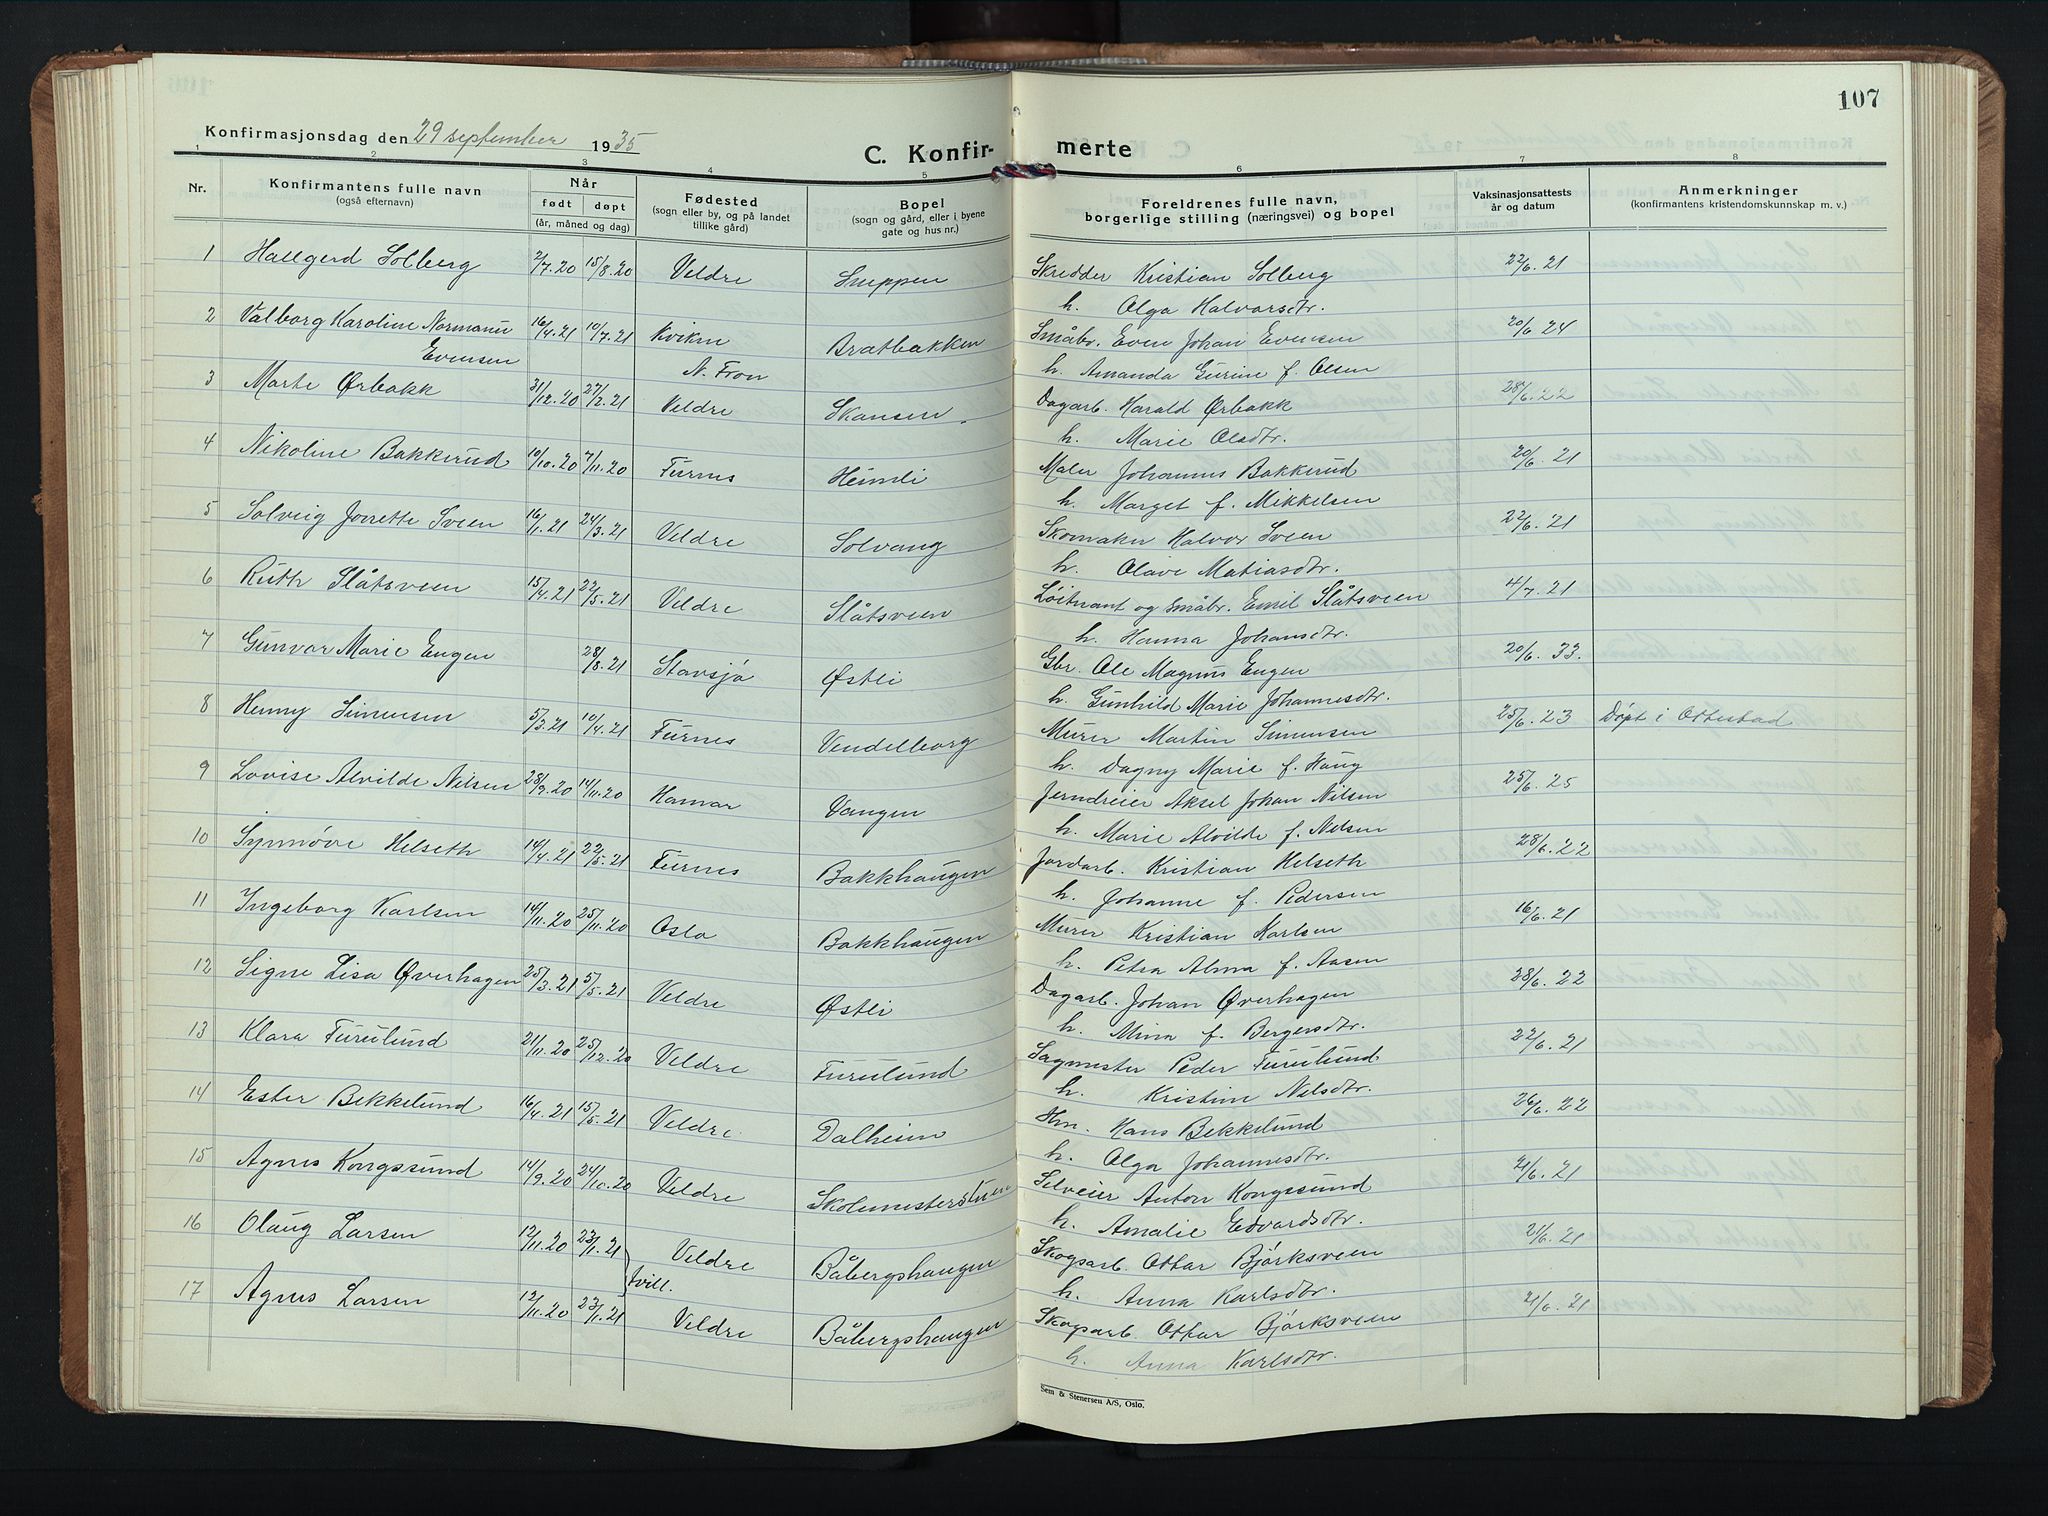 107
Konfirmasjonsdag den 29 september 1935
C. Konfirmerte
1 2 3 4 5 6 7 8
Nr. Konfirmantens fulle navn (også efternavn) Når født døpt (år, måned og dag) Fødested (sogn eller by, og på landet tillike gård) Bopel (sogn og gård, eller i byene gate og hus nr.) Foreldrenes fulle navn, borgerlige stilling (næringsvei) og bopel Vaksinasjonsattests år og datum Anmerkninger (konfirmantens kristendomskunnskap m. v.)
1 Hallgerd Solberg 2/7.20 15/8.20 Veldre Snippen Skredder Kristian Solberg 22/6.21
h. Olga Halvorsdtr.
2 Valborg Karoline Normanni 16/4.21 10/7.21 Kvikne Bratbakken Småbr. Even Johan Evensen 20/6.24
Evensen N. Fron h. Amanda Gurine f. Olsen
3 Marte Ørbakk 31/12.20 27/2.21 Veldre Skansen Dagarb. Harald Ørbakk 28/6.22
h. Marie Olsdtr.
4 Nikoline Bakkerud 10/10.20 7/11.20 Furnes Heimli Maler Johannes Bakkerud 20/6.21
h. Marget f. Mikkelsen
5 Solveig Jonette Sveen 16/1.21 24/3.21 Veldre Solvang Skomaker Halvor Sveen 22/6.21
h. Olave Matiasdtr.
6 Ruth Slåtsveen 15/4.21 22/5.21 Veldre Slåtsveen Løitnant og småbr. Emil Slåtsveen 4/7.21
h. Hanna Johansdtr.
7 Gunvor Marie Engen 28/8.21 Stavsjø Østli Gbr. Ole Magnus Engen 20/6.33.
h. Gunhild Marie Johannesdtr.
8 Henny Simensen 5/3.21 10/4.21 Furnes Vendelborg Murer Martin Simensen 25/6.23 Døpt i Ottestad
h. Dagny Marie f. Haug
9 Lovise Alvilde Nilsen 28/9.20 14/11.20 Hamar Vangen Jerndreier Aksel Johan Nilsen 25/6.25
h. Marie Alvilde f. Nilsen
10 Synnøve Helseth 14/4.21 22/5.21 Furnes Bakkhaugen Jordarb. Kristian Helseth 28/6.22
h. Johanne f. Pedersen
11 Ingeborg Karlsen 14/11.20 25/11.20 Oslo Bakkhaugen Murer Kristian Karlsen 16/6.21
h. Petra Alma f. Aasen
12 Signe Lisa Øverhagen 25/3.21 5/5.21 Veldre Østli Dagarb. Johan Øverhagen 28/6.22
h. Mina f. Bergersdtr.
13 Klara Furulund 21/11.20 25/12.20 Veldre Furulund Sagmester Peder Furulund 22/6.21
h. Kristine Nilsdtr.
14 Ester Bekkelund 16/4.21 15/5.21 Veldre Dalheim Hm. Hans Bekkelund 26/6.22
h. Olga Johannesdtr.
15 Agnes Kongssund 14/9.20 24/10.20 Veldre Skolemesterstuen Selveier Anton Kongssund 21/6.21
h. Amalie Edvardsdtr.
16 Olaug Larsen 12/11.20 23/1.21 Veldre Båbergshaugen Skogsarb. Ottar Bjørksveen 21/6.21
tvill. h. Anna Karlsdtr.
17 Agnes Larsen 12/11.20 23/1.21 Veldre Båbergshaugen Skogsarb. Ottar Bjørksveen 21/6.21
h. Anna Karlsdtr.
Sem & Stenersen A/S, Oslo.